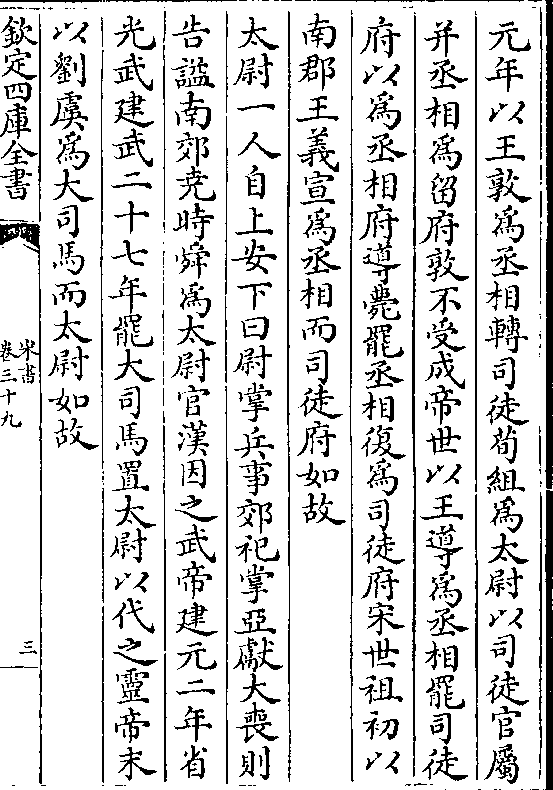 元年以王敦爲丞相轉司徒荀組爲太尉以司徒官屬
并丞相爲留府敦不受成帝世以王導爲丞相罷司徒
府以爲丞相府導薨罷丞相復爲司徒府宋世祖初以
南郡王義宣爲丞相而司徒府如故
太尉一人自上安下曰尉掌兵事郊祀掌亞獻大喪則
告諡南郊堯時舜爲太尉官漢因之武帝建元二年省
光武建武二十七年罷大司馬置太尉以代之靈帝末
以劉虞爲大司馬而太尉如故
欽定四庫全書
宋書
卷三十九
三